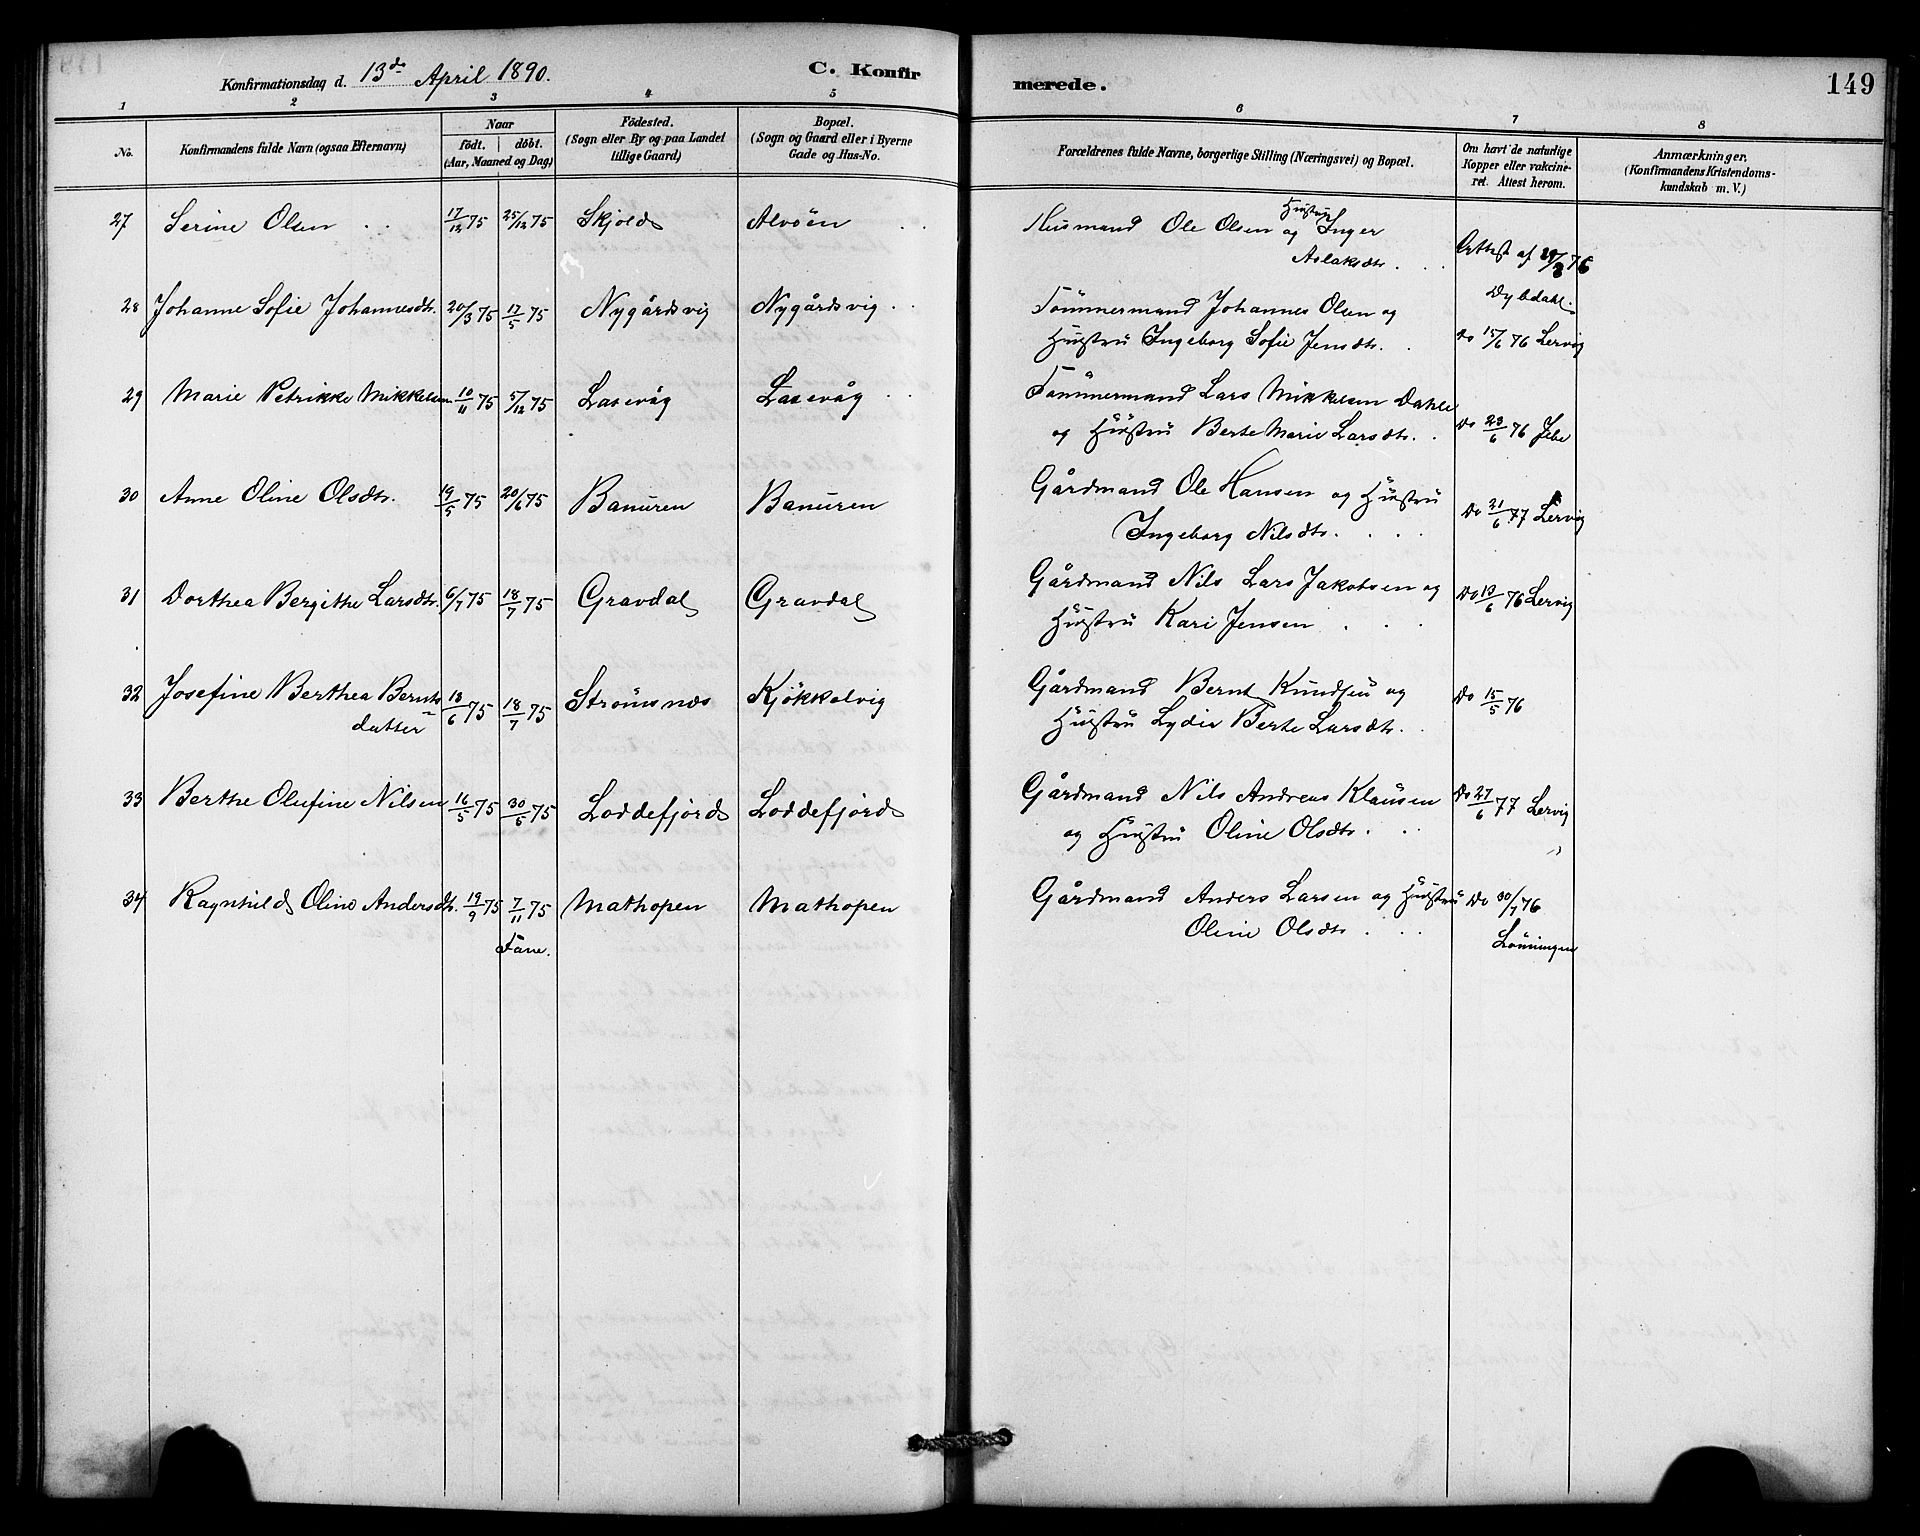 Konfirmationsdag d. 13de April 1890. C. Konfirmerede. 149
1 2 3 4 5 6 7 8
No. Konfirmandens fulde Navn (ogsaa Efternavn) Naar födt. döbt. (Aar, Maaned og Dag) Födested. (Sogn eller By og paa Landet tillige Gaard) Bopæl. (Sogn og Gaard eller i Byerne Gade og Hus-No. Forældrenes fulde Navne, borgerlige Stilling (Næringsvei) og Bopæl. Om havt de naturlige Kopper eller vakcineret. Attest herom. Anmærkninger. (Konfirmandens Kristendomskundskab m. V.)
27 Serine Olsen 17/12 75 25/12 75 Skjold Alvöen Husmand Ole Olsen og Hustru Inger
Aslaksdtr. Attest af 29/3 76
Dybdahl.
28 Johanne Sofie Johannesdtr. 20/3 75 17/5 75 Nygårdsvig Nygårdsvig Tömmermand Johannes Olsen og
Hustru Ingeborg Sofie Jensdtr. Do 15/6 76 Lervig
29 Marie Petrikke Mikkelsen 10/11 75 5/12 75 Laxevåg Laxevåg Tömmermand Lars Mikkelsen Dahle
og Hustru Berte Marie Larsdtr. Do 23/6 76 Jebe
30 Anne Oline Olsdtr. 19/5 75 20/6 75 Banuren Banuren Gårdmand Ole Hansen og Hustru
Ingeborg Nilsdtr. Do 21/6 77 Lervig
31 Dorthea Bergithe Larsdtr. 6/7 75 18/7 75 Gravdal Gravdal Gårdmand Nils Lars Jakobsen og
Hustru Kari Jensen Do 13/6 76 Lervig
32 Josefine Berthea Bernts
datter 13/6 75 18/7 75 Strömsnæs Kjökkelvig Gårdmand Bernt Knudsen og
Hustru Lydie Berte Larsdtr. Do 15/5 76
33 Berthe Olufine Nilsen 16/5 75 30/5 75 Loddefjord Loddefjord Gårdmand Nils Andreas Klausen
og Hustru Oline Olsdtr. Do 27/6 77 Lervig
34 Ragnhild Oline Andersdtr. 19/9 75 7/11 75 Mathopen Mathopen Gårdmand Anders Larsen og Hustru
Fane. Oline Olsdtr Do 30/7 76
Lönningen